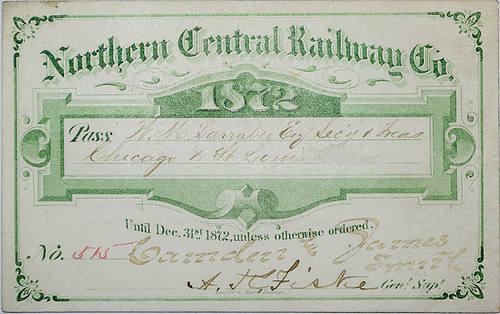 Northern Central Railway Co.
1872
Pass W. M. Larrabee Esq Sec'y & Treas
Chicago & St Louis
Until Dec. 31st 1872, unless otherwise ordered.
No. 515 Camden & James Smith
A. R. Fiske Genl Supt